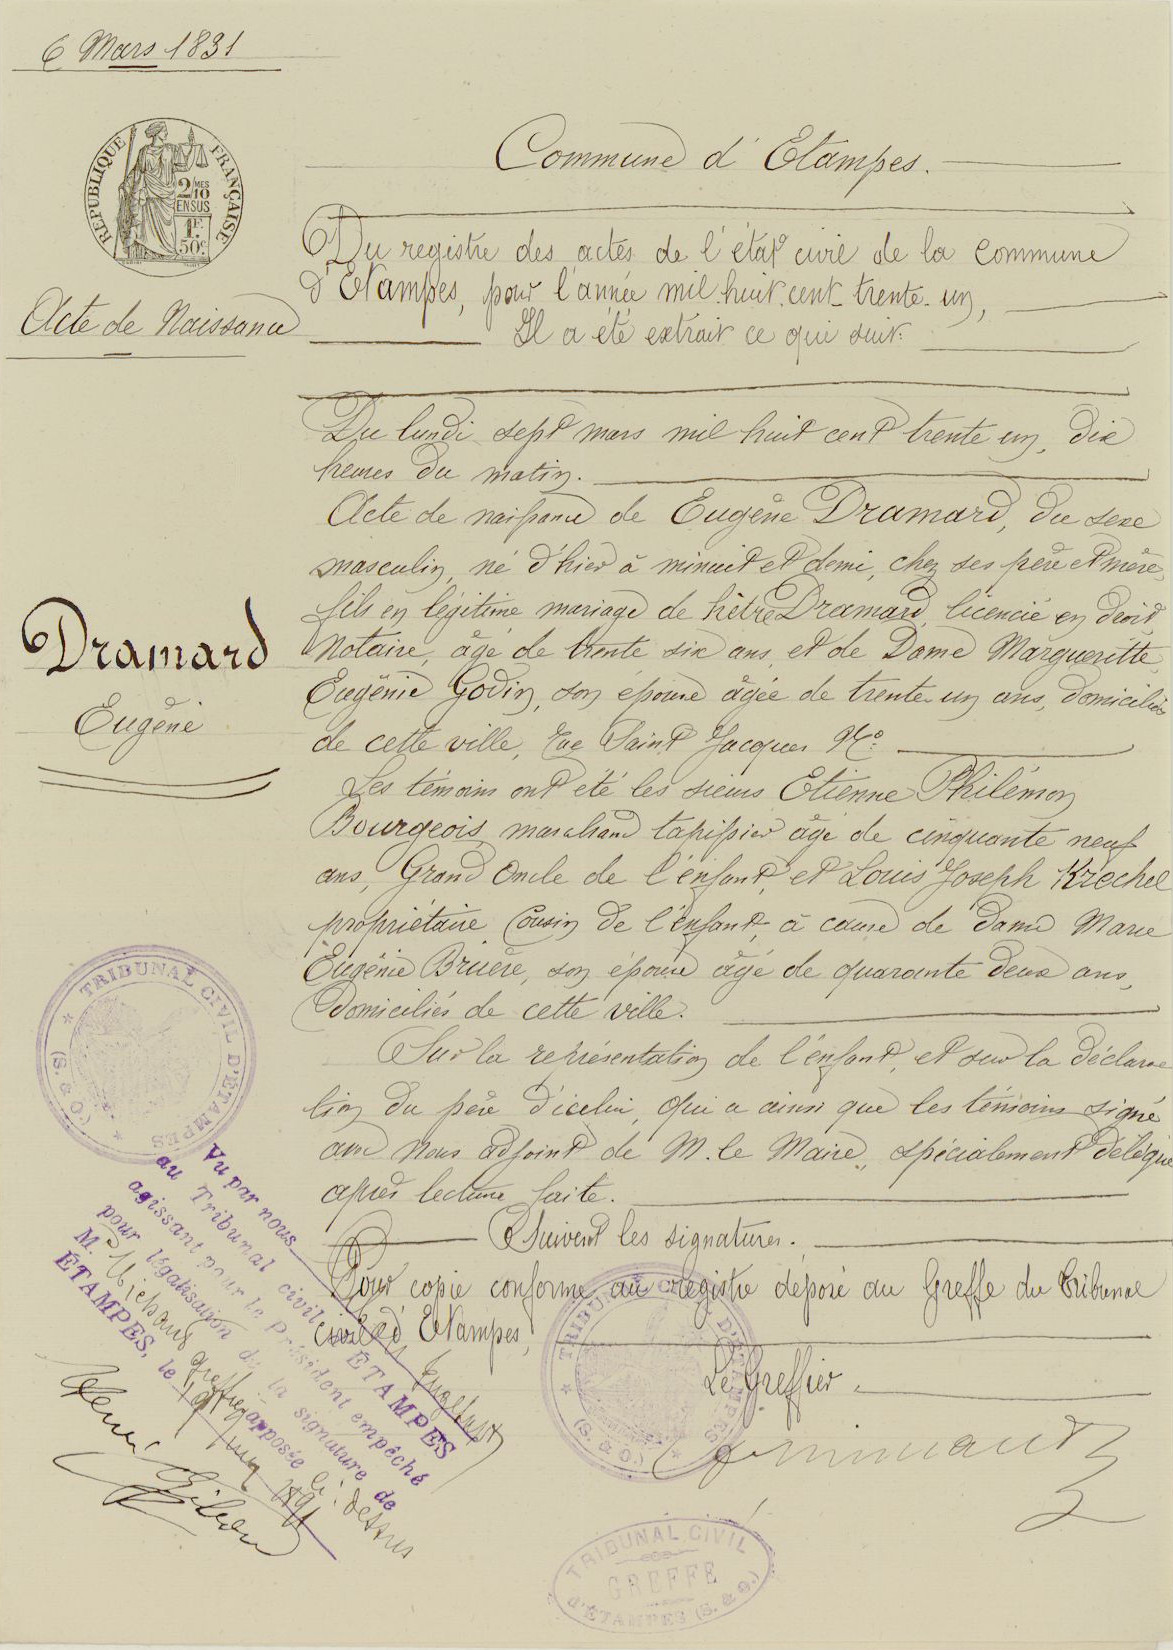 6 Mars 1831
RÉPUBLIQUE FRANÇAISE
2/10MES
EN SUS
1F.
50c.
Commune d'Etampes.
Du registre des actes de l'état civil de la commune
d'Etampes, pour l'année mil-huit-cent-trente-un,
Acte de Naissance
Il a été extrait ce qui suit:
Du lundi sept mars mil huit cent trente un, dix
heures du matin.
Acte de naissance de Eugène Dramard, du sexe
masculin, né d'hier à minuit et demi, chez ses père et mère,
fils en légitime mariage de Dramard, licencié en droit,
Notaire, âgé de trente six ans, et de Dame Margueritte
Eugénie Godin, son épouse âgée de trente-un ans, domiciliés
de cette ville, rue Saint Jacques No:
Dramard
Eugène
Les témoins ont été les sieurs Etienne Philémon
Bourgeois, marchand tapissier âgé de cinquante neuf
ans, Grand Oncle de l'enfant, et Louis Joseph Krechel
propriétaire Cousin de l'enfant, à cause de dame Marie
Eugénie Bruère, son épouse âgé de quarante deux ans,
Domiciliés de cette ville.
Sur la représentation de l'enfant, et sur la déclara
tion du père d'icelui, qui a ainsi que les témoins signé
avec Nous adjoint de M. le Maire, spécialement délégué
après lecture faite.
Suivent les signatures.
Pour copie conforme au registre déposé au Greffe du Tribunal
civil d'Etampes,
Le Greffier
TRIBUNAL CIVIL D'ÉTAMPES
(S. & O.)
Vu par nous
au Tribunal civil ÉTAMPES
agissant pour le Président empêché
pour légalisation de la signature de
M. Michaud greffier apposée ci-dessus
ÉTAMPES, le
TRIBUNAL CIVIL D'ÉTAMPES
(S. & O.)
TRIBUNAL CIVIL
GREFFE
D'ÉTAMPES (S. & O.)